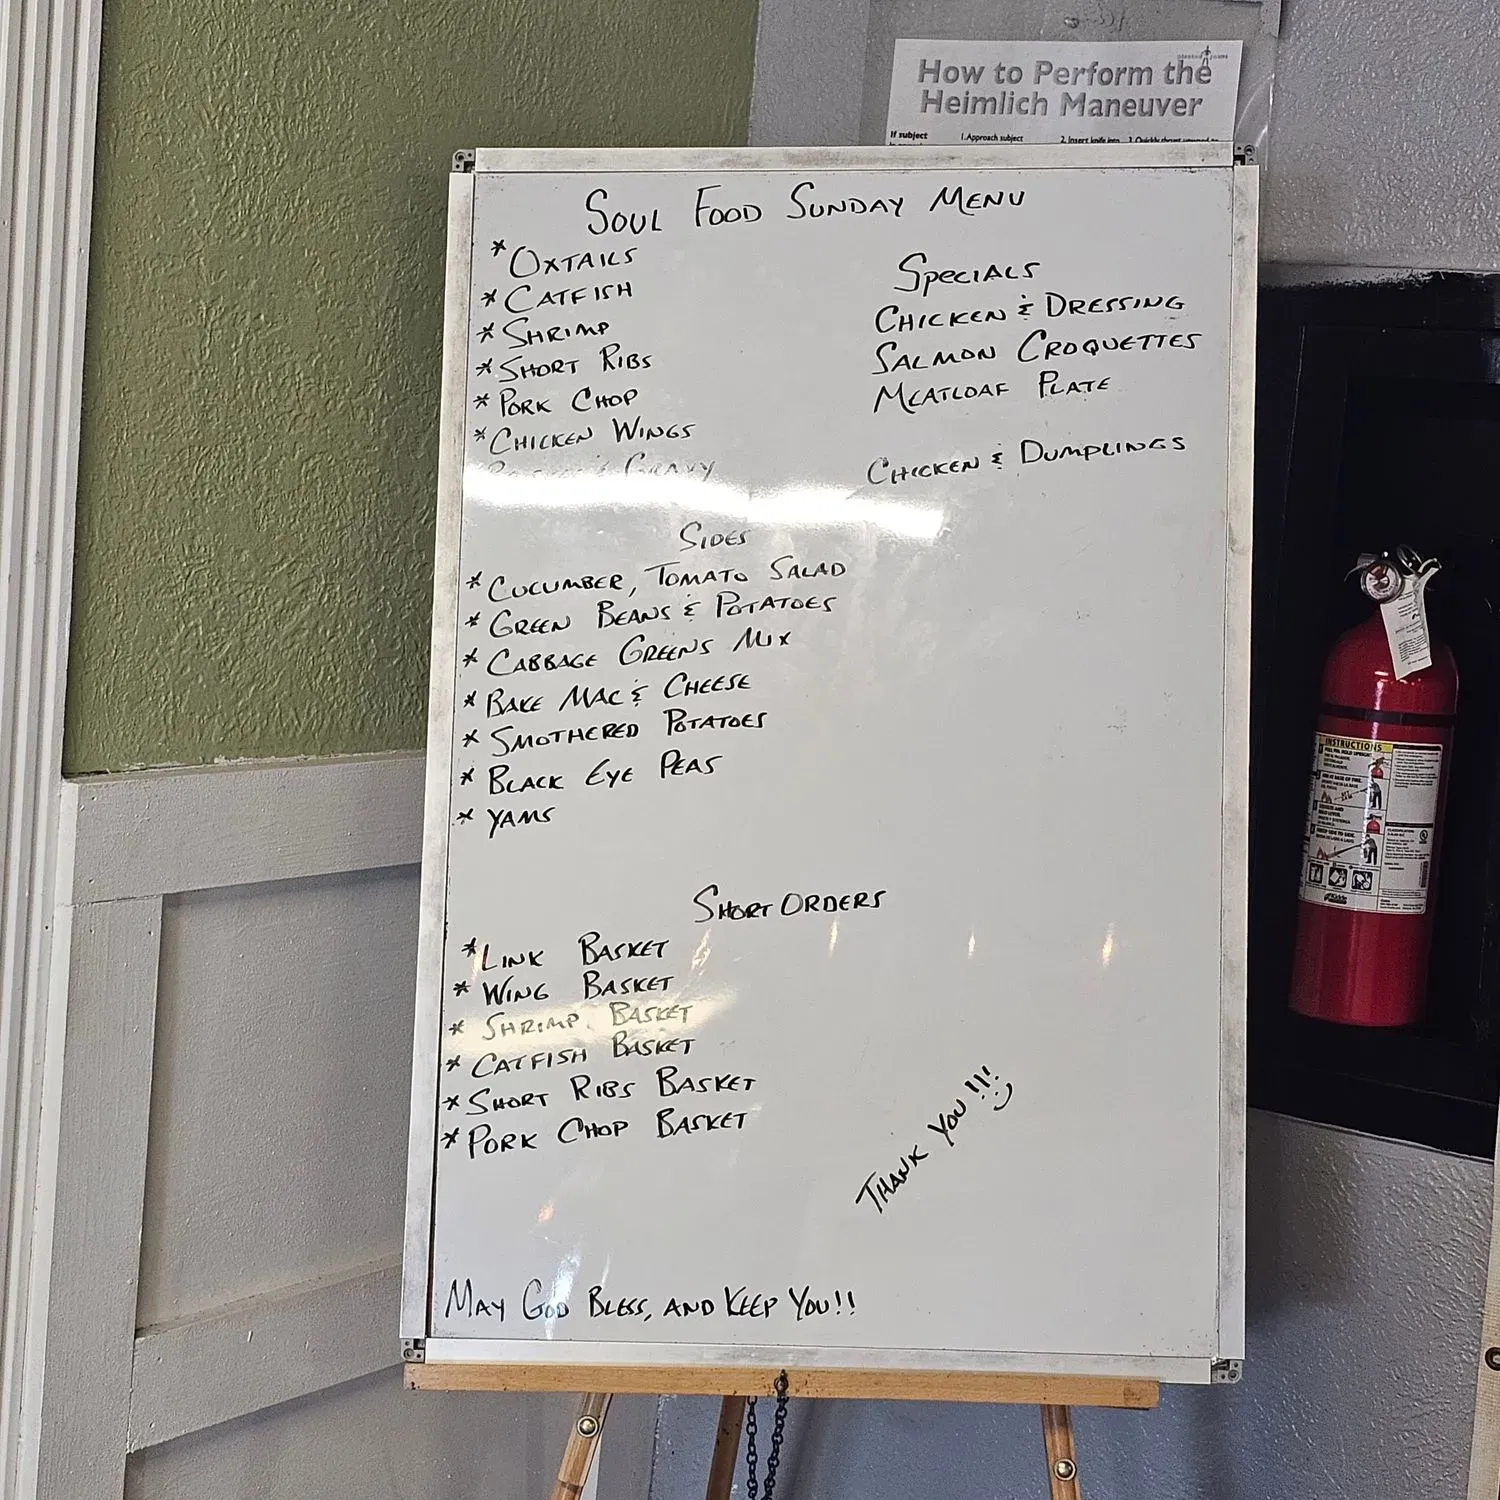 How to Perform the
Heimlich Maneuver
If subject
1. Approach subject
2. Insert knife into
3. Quickly thrust
SOUL FOOD SUNDAY MENU
* OXTAILS
* CATFISH
* SHRIMP
* SHORT RIBS
* PORK CHOP
* CHICKEN WINGS
GRAVY
SPECIALS
CHICKEN & DRESSING
SALMON CROQUETTES
MEATLOAF PLATE
CHICKEN & DUMPLINGS
SIDES
* CUCUMBER, TOMATO SALAD
* GREEN BEANS & POTATOES
* CABBAGE GREENS MIX
* BAKE MAC & CHEESE
* SMOTHERED POTATOES
* BLACK EYE PEAS
* YAMS
SHORT ORDERS
* LINK BASKET
* WING BASKET
* SHRIMP BASKET
* CATFISH BASKET
* SHORT RIBS BASKET
* PORK CHOP BASKET
THANK YOU!!!
MAY GOD BLESS, AND KEEP YOU!!
INSTRUCTIONS
Kidde